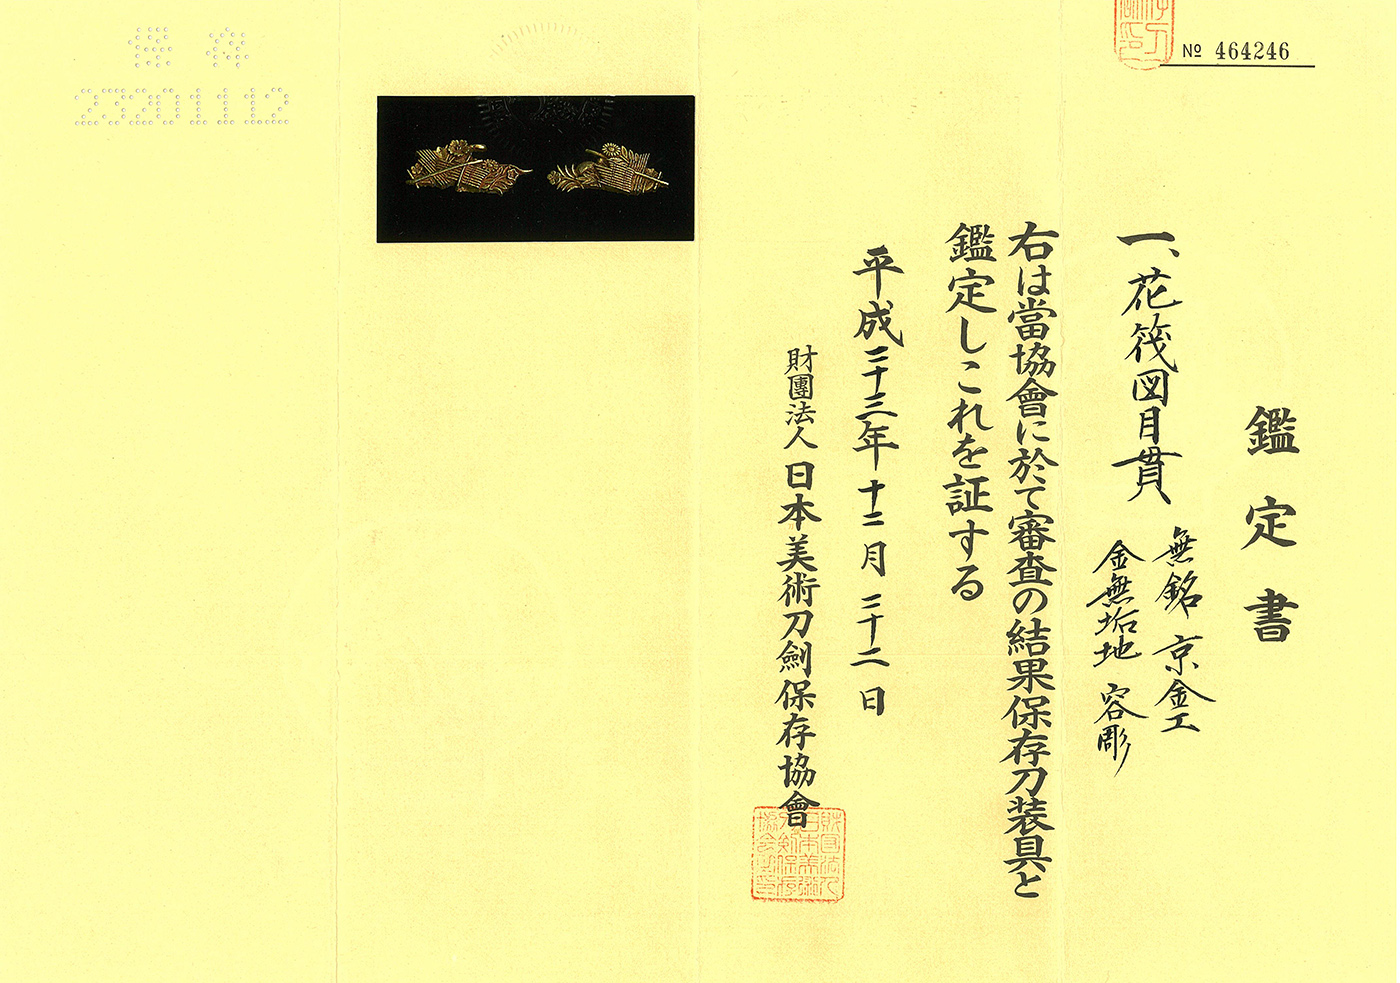 № 464246
鑑定書
一、花筏図目貫
無銘 京金工
金無垢地 容彫
右は當協會に於て審査の結果保存刀装具と
鑑定しこれを証する
平成二十三年十二月二十二日
財團法人 日本美術刀劍保存協會
財団法人
日本美術
刀剣保存
協会之印
23201112